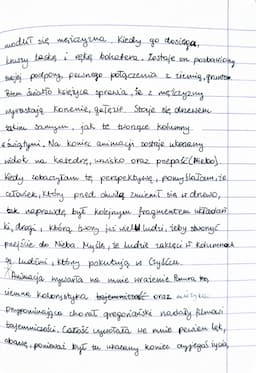 modlił się mężczyzna. Kiedy go dosięga,
kruszy laskę i rękę bohatera. Zostaje on pozbawiony
swojej podpory, pewnego połączenia z ziemią, gruntem.
światło księżyca sprawia, że z mężczyzny
wyrastają korzenie, gałęzie. Staje się drzewem
takim samym, jak te tworzące kolumny
świątyni. Na koniec animacji zostaje ukazany
widok na katedrę, urwisko oraz przepaść (Niebo).
Kiedy zobaczyłam tę perspektywę, pomyślałam, że
człowiek, który przed chwilą zmienił się w drzewo,
tak naprawdę był kolejnym fragmentem układan
ki, drogi, którą tworzy już wielu ludzi, żeby stworzyć
przejście do Nieba. Myślę, że ludzie zaklęci w kolumnach
są ludźmi, którzy pokutują w Czyśćcu.
Animacja wywarła na mnie wrażenie. Ponura
ciemna kolorystyka tajemniczość oraz muzyka
przypominająca chorał gregoriański nadały filmowi
tajemniczości. Całość wywołała we mnie pewien lęk,
obawę, ponieważ był tu ukazany koniec czyjegoś życia,